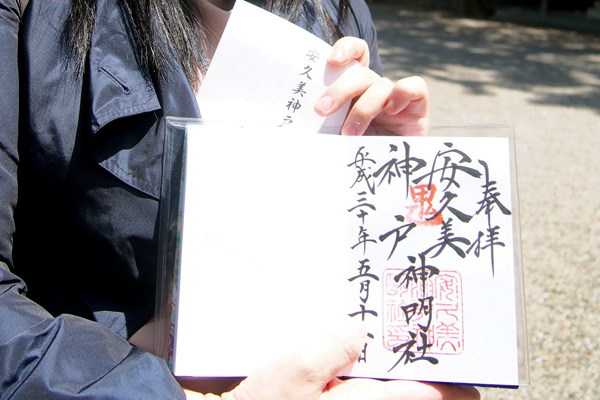 安久美神戸
奉拝
安久美
神戸神明社
鬼
平成三十年五月十八日